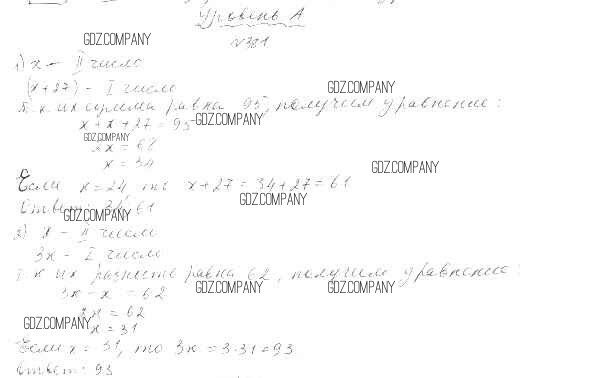 Уровень А
GDZ.COMPANY
№381
1) х - II число
(х+27) - I число
GDZ.COMPANY
Т.к. их сумма равна 95, получим уравнение:
х + х + 27 = 95
GDZ.COMPANY
GDZ.COMPANY
2х = 68
х = 34
GDZ.COMPANY
Если х = 24 то х+27 = 34+27 = 61
GDZ.COMPANY
Ответ: 34, 61
GDZ.COMPANY
2) х - II число
3х - I число
Т.к их разность равна 62, получим уравнение:
3х - х = 62
GDZ.COMPANY
GDZ.COMPANY
2х = 62
GDZ.COMPANY
х = 31
Если х = 31, то 3х = 3·31 = 93
Ответ: 93